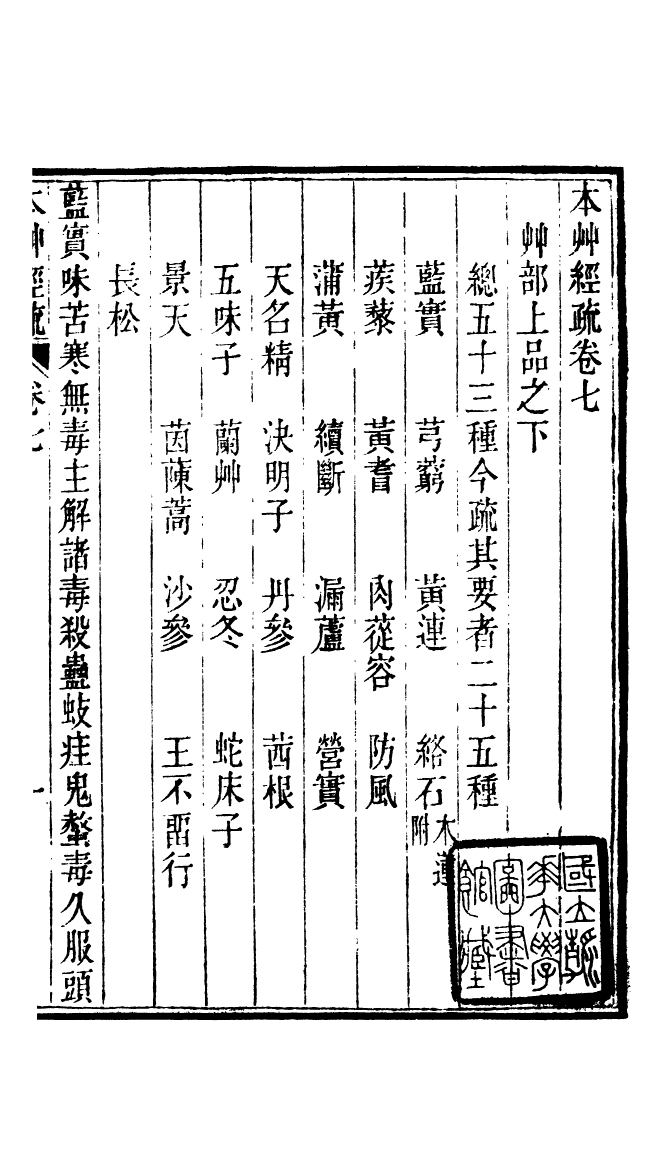 本艸經疏卷七
艸部上品之下
總五十三種今疏其要者二十五種
藍實 芎藭 黃連 絡石木蓮附
蒺藜 黃耆 肉蓯容 防風
蒲黃 續斷 漏蘆 營實
天名精 決明子 丹參 茜根
五味子 蘭艸 忍冬 蛇床子
景天 茵蔯蒿 沙參 王不畱行
長松
藍實味苦寒無毒主解諸毒殺蠱蚑疰鬼螫毒久服頭
本艸經疏 卷七 一
國立
大學
圖書
館藏